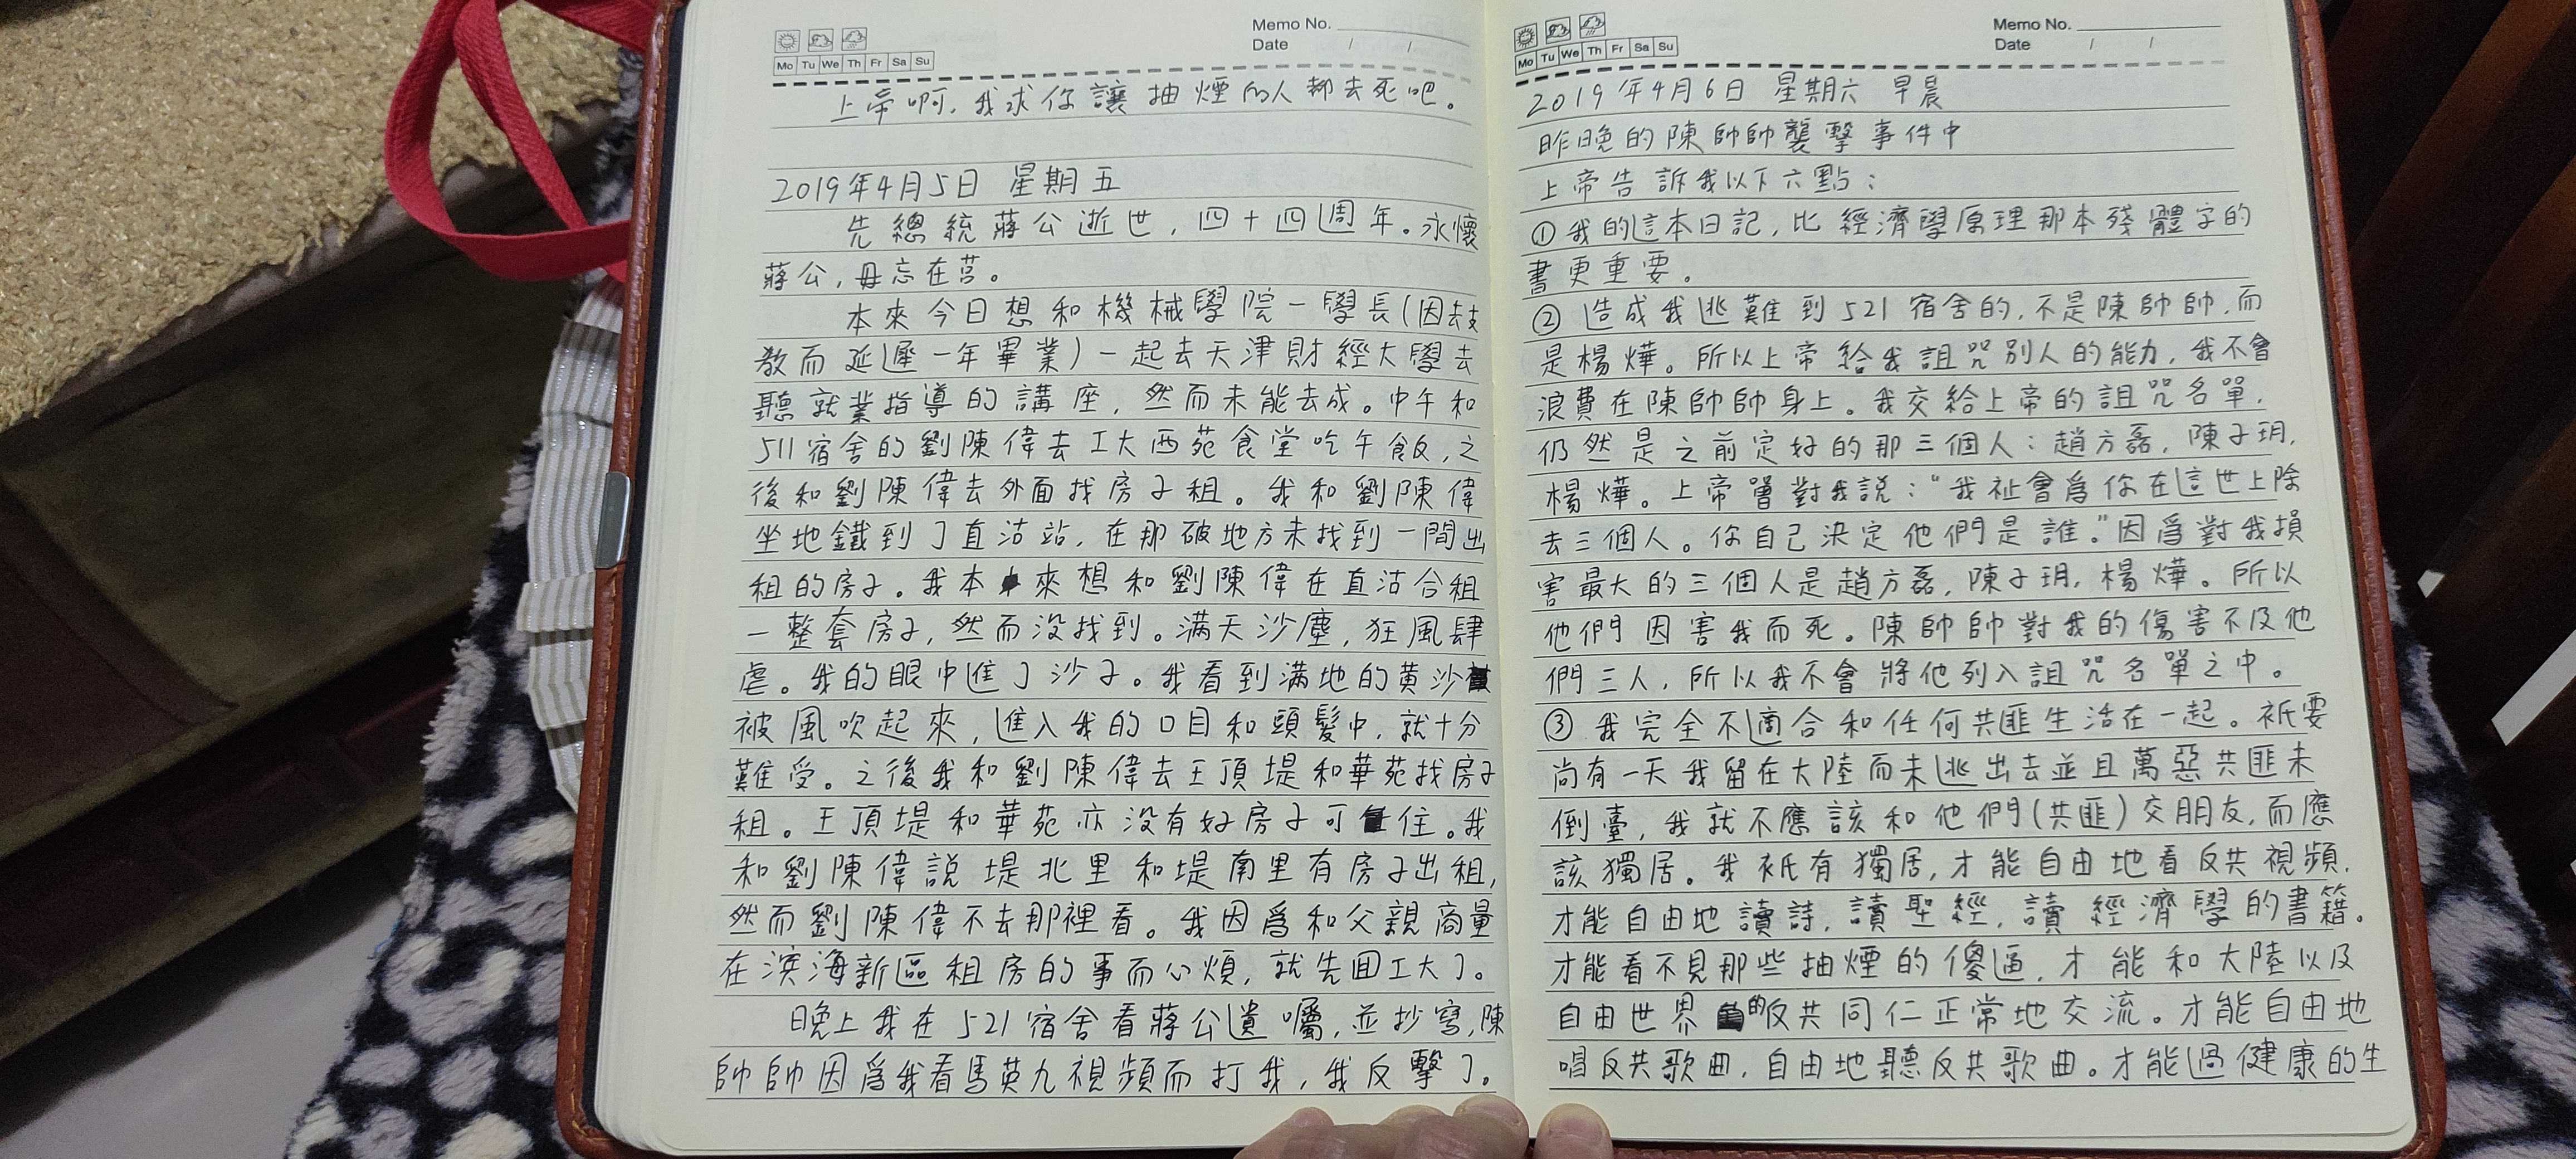 Memo No.
Date / /
Mo Tu We Th Fr Sa Su
上帝啊,我求你讓抽煙的人都去死吧。
2019年4月5日 星期五
先總統蔣公逝世,四十四週年。永懷
蔣公,毋忘在莒。
本來今日想和機械學院一學長(因支
教而延遲一年畢業)一起去天津財經大學去
聽就業指導的講座,然而未能去成。中午和
511宿舍的劉陳偉去工大西苑食堂吃午飯,之
後和劉陳偉去外面找房子租。我和劉陳偉
坐地鐵到了直沽站,在那破地方未找到一間出
租的房子。我本來想和劉陳偉在直沽合租
一整套房子,然而没找到。滿天沙塵,狂風肆
虐。我的眼中進了沙子。我看到滿地的黄沙
被風吹起來,進入我的口目和頭髮中,就十分
難受。之後我和劉陳偉去王頂堤和華苑找房子
租。王頂堤和華苑亦没有好房子可住。我
和劉陳偉説堤北里和堤南里有房子出租,
然而劉陳偉不去那裡看。我因爲和父親商量
在濱海新區租房的事而心煩,就先回工大了。
晚上我在521宿舍看蔣公遺囑,並抄寫,陳
帥帥因爲我看馬英九視頻而打我,我反擊了。
Memo No.
Date / /
Mo Tu We Th Fr Sa Su
2019年4月6日 星期六 早晨
昨晚的陳帥帥襲擊事件中
上帝告訴我以下六點:
①我的這本日記,比經濟學原理那本殘體字的
書更重要。
②造成我逃難到521宿舍的,不是陳帥帥,而
是楊燁。所以上帝給我詛咒别人的能力,我不會
浪費在陳帥帥身上。我交給上帝的詛咒名單,
仍然是之前定好的那三個人:趙方磊,陳子玥,
楊燁。上帝曾對我説:“我祉會爲你在這世上除
去三個人。你自己決定他們是誰。”因爲對我損
害最大的三個人是趙方磊,陳子玥,楊燁。所以
他們因害我而死。陳帥帥對我的傷害不及他
們三人,所以我不會將他列入詛咒名單之中。
③我完全不適合和任何共匪生活在一起。衹要
尚有一天我留在大陸而未逃出去並且萬惡共匪未
倒臺,我就不應該和他們(共匪)交朋友,而應
該獨居。我衹有獨居,才能自由地看反共視頻,
才能自由地讀詩,讀聖經,讀經濟學的書籍。
才能看不見那些抽煙的傻逼,才能和大陸以及
自由世界的反共同仁正常地交流。才能自由地
唱反共歌曲,自由地聽反共歌曲。才能過健康的生